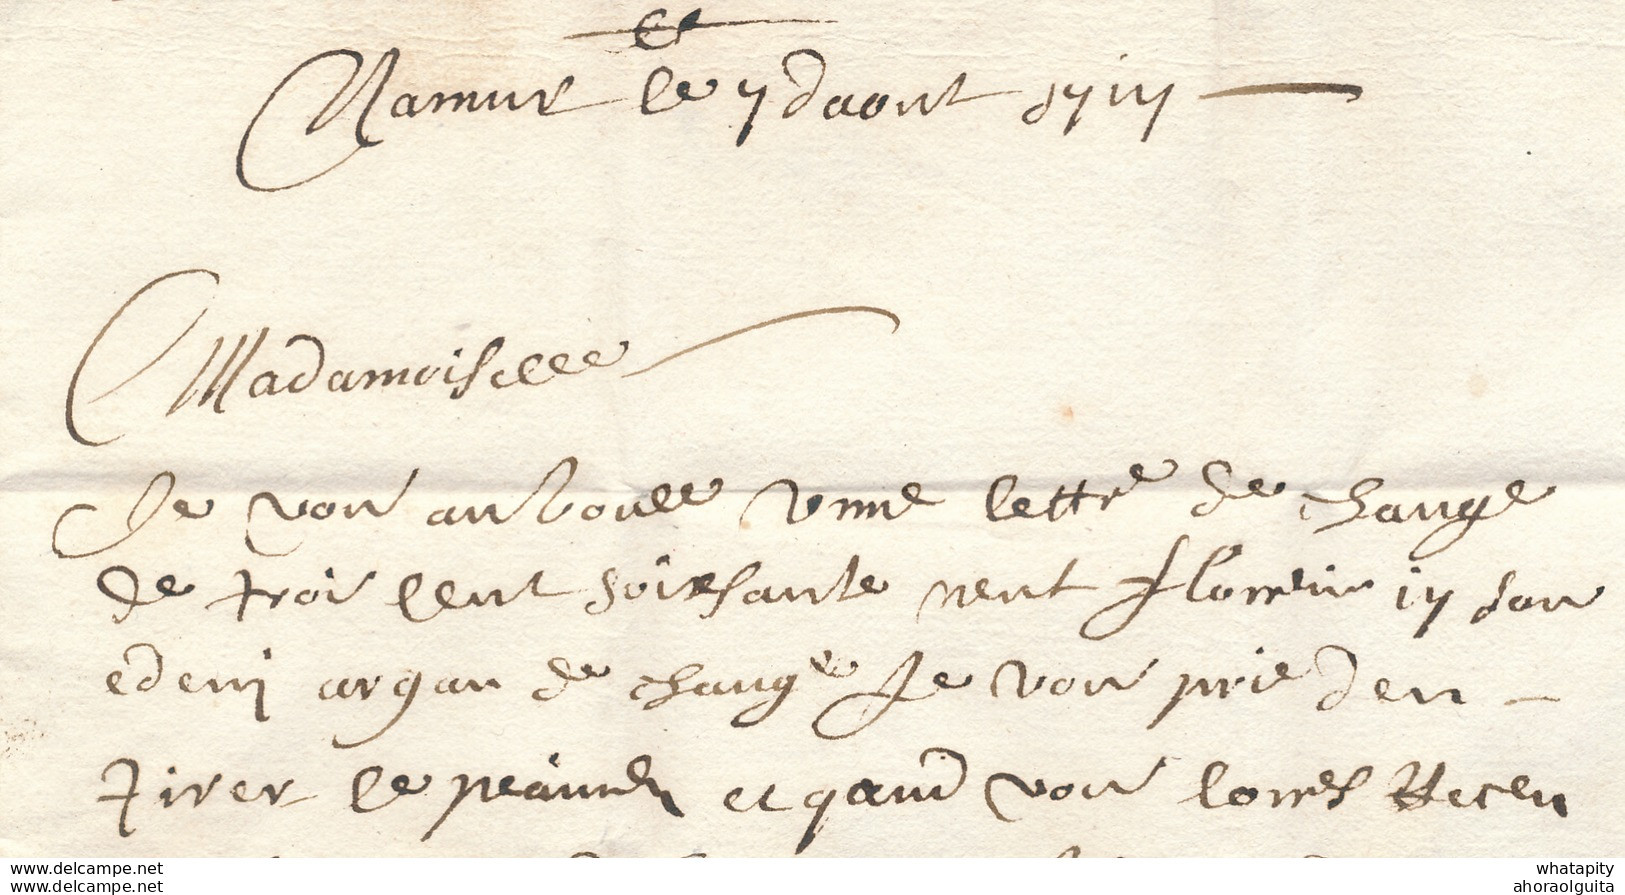 Namur le 7 daout 1717
Madamoiselle
Je vou anvoiee vnne lettre de change
de troi cent soissante neuf florein 17 sou
edemi argan de change Je vou prie den
tirer le et qand vou lorres Receu
www.delcampe.net whatapity
www.delcampe.net ahoraolguita